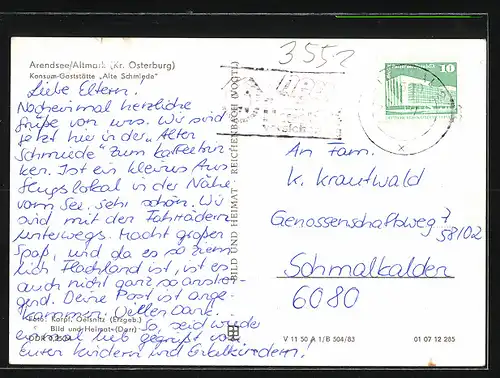 Arendsee/Altmark (Kr. Osterburg)
Konsum-Gaststätte „Alte Schmiede"
Liebe Eltern.
Nocheinmal herzliche
Grüße von uns. Wir sind
jetzt hier in der „Alten
Schmiede" zum Kaffeetrin
ken. Ist ein kleines Aus
flugslokal in der Nähe
vom See. Sehr schön. Wir
sind mit den Fahrrädern
unterwegs. Macht großen
Spaß, und da es so ziem
lich Flachland ist, ist es
auch nicht ganz so anstre-
gend. Deine Post ist ange-
kommen. Vielen Dank.
Foto: Karpf, Oelsnitz (Erzgeb.)
Bild und Heimat (Darr)
So, seid wieder
einmal lieb gegrüßt von
Euren Kindern und Enkelkindern.
BILD UND HEIMAT · REICHENBACH (VOGTL)
3551
10
An Fam.
K. Krautwald
Genossenschaftsweg 7
58/02
Schmalkalden
6080
V 11 50 A 1/B 504/83
01 07 12 285